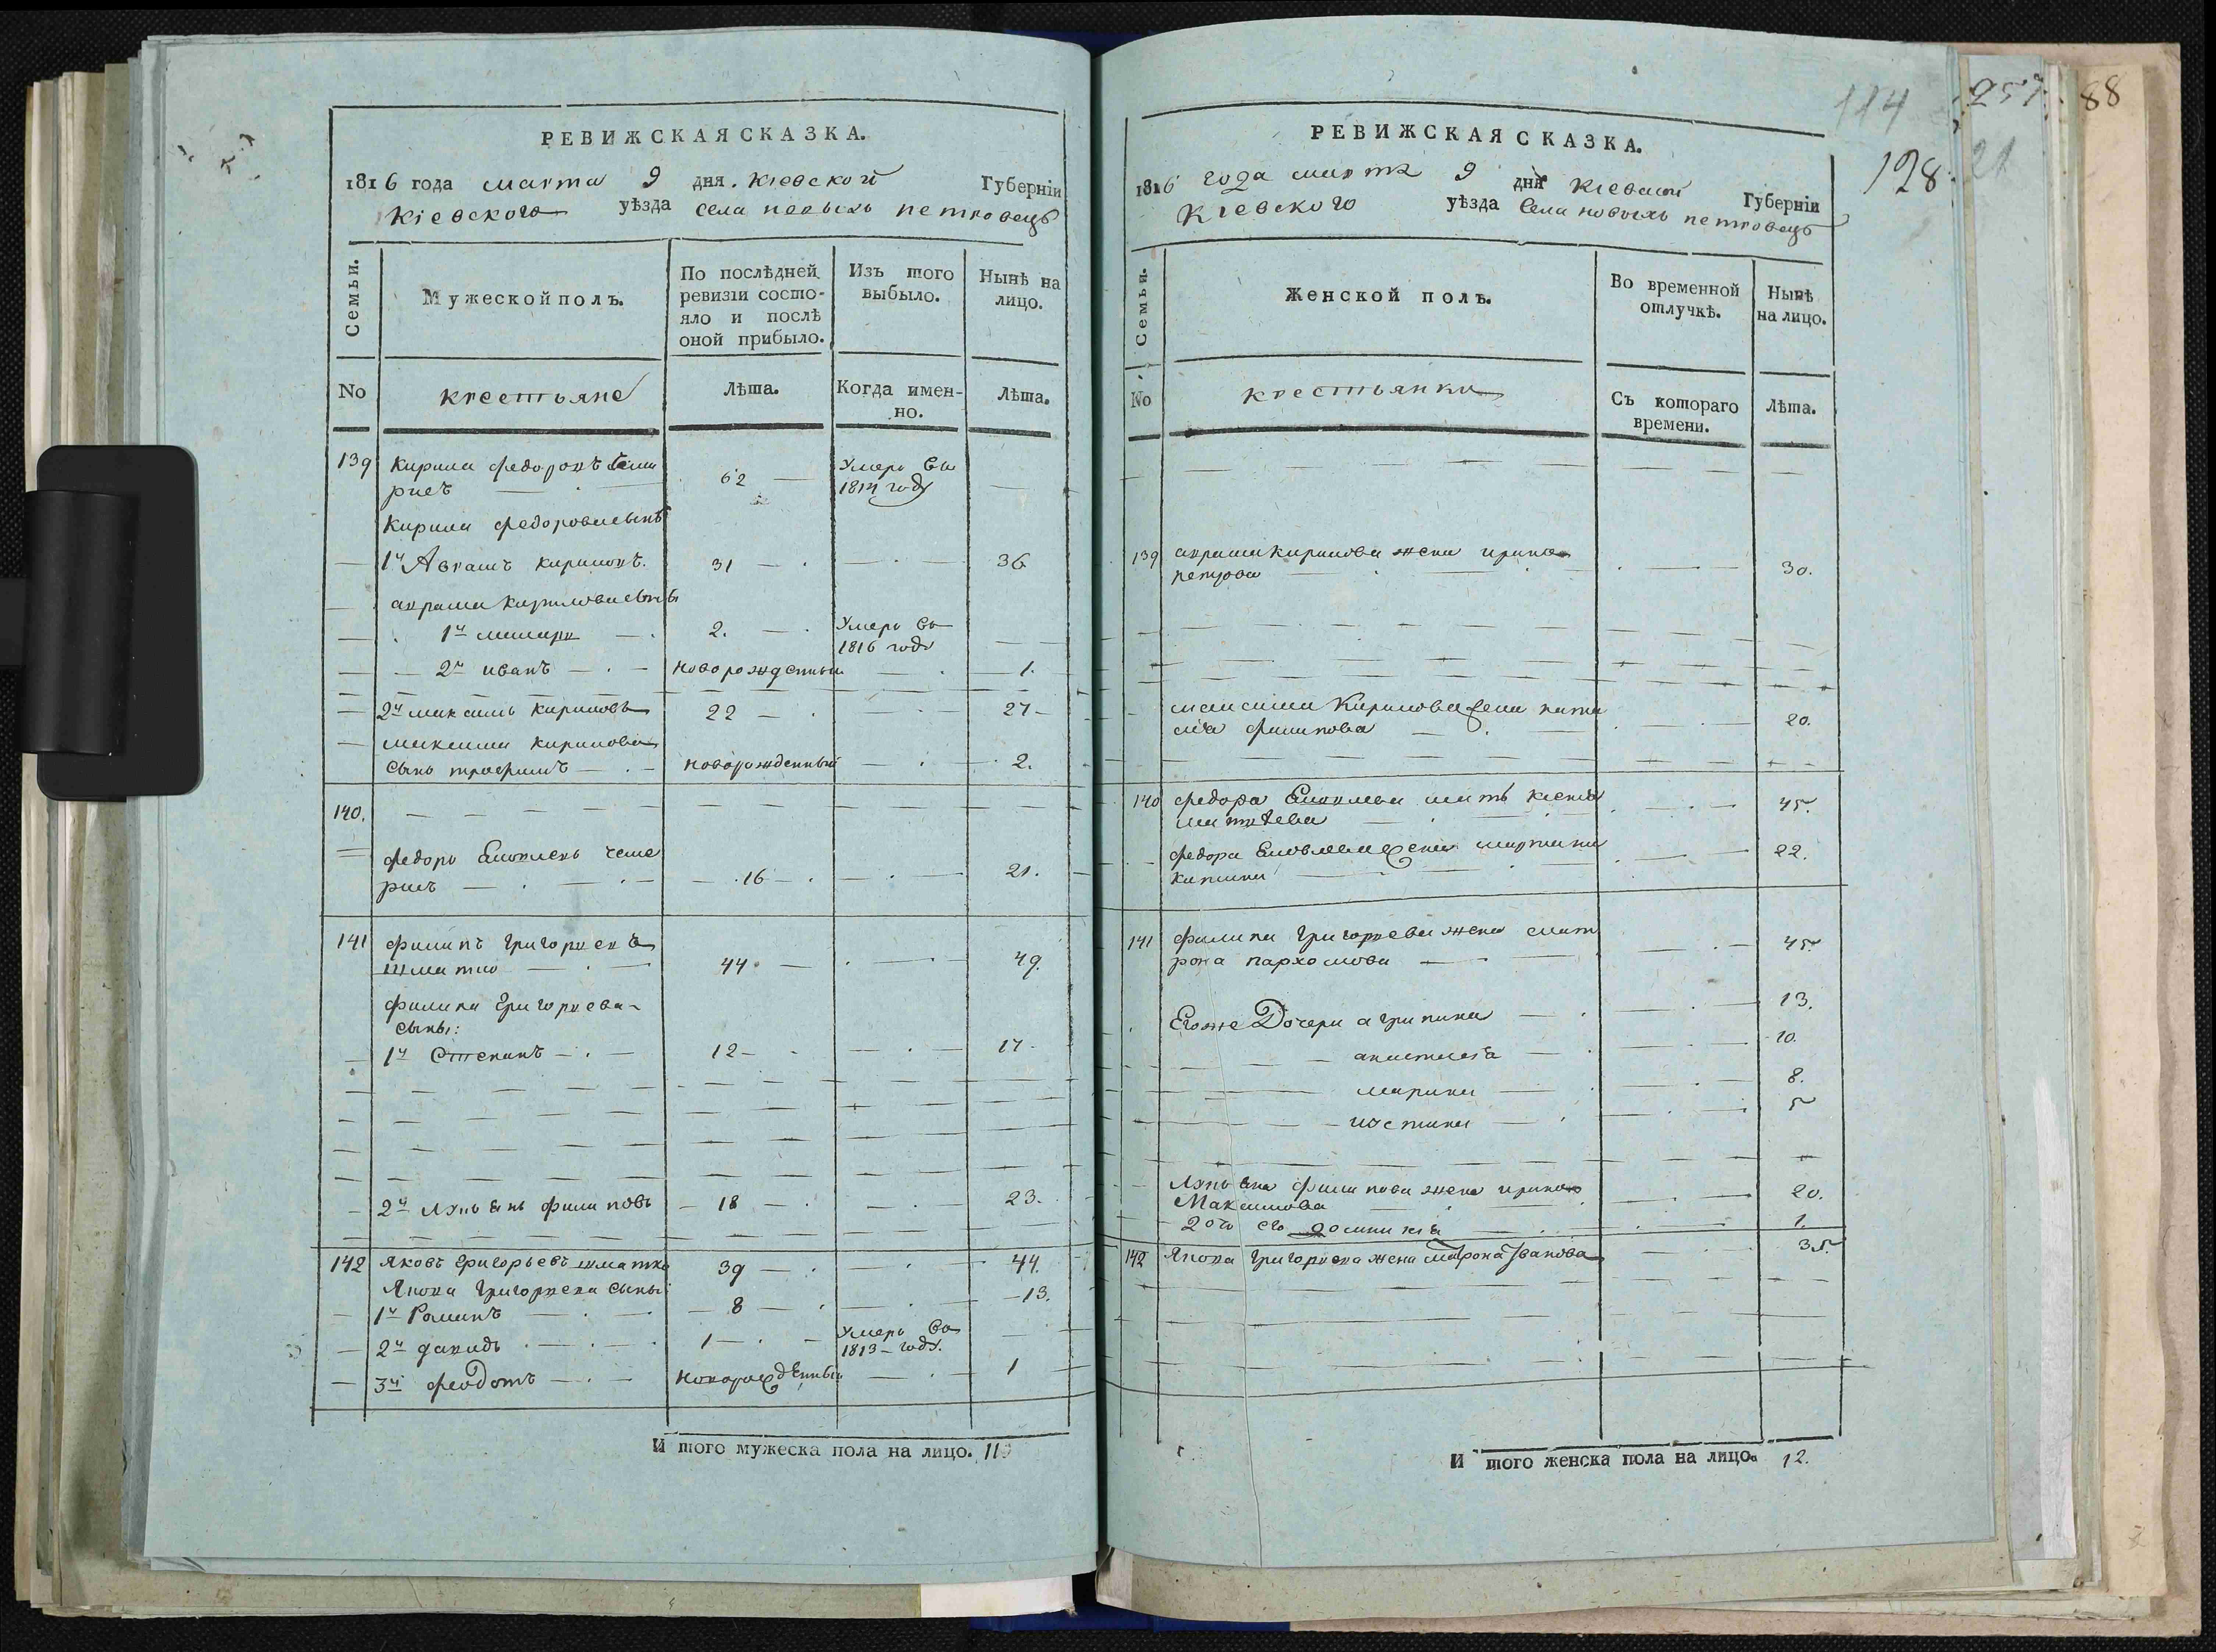 РЕВИЖСКАЯ СКАЗКА.
1816 года марта 9 дня. Кіевской Губерніи
Кіевского уѣзда села новыхъ петровецъ
Семьи.
Мужеской полъ.
По послѣдней ревизіи состояло и послѣ оной прибыло.
Изъ того выбыло.
Нынѣ на лицо.
No
крестьяне
Лѣта.
Когда именно.
Лѣта.
139 Кирила федоровъ чеме
рисъ 62 Умеръ въ 1814 годѵ
Кирила федорова сынъ
1й Аврамъ кириловъ. 31 36
аврама кирилова сынъ
1й 2. Умеръ въ 1816 годѵ
2й иванъ новорожденный 1.
2й максимъ кириловъ 22 27
максима кирилова
сынъ трофимъ новорожденный 2.
140.
федоръ Яковлевъ чеме
рисъ 16 21.
141 филипъ григориевъ
шматко 44 49.
филипа григориева
сыны:
1й Степанъ 12 17
2й лукьянъ филиповъ 18 23.
142 Яковъ григорьевъ шматко 39 44.
Якова григориева сыны:
1й Романъ 8 13.
2й давидъ 1 Умеръ въ 1813 годѵ.
3й феодотъ новорожденный 1
И того мужеска пола на лицо. 11
114
128.
257
88
21
РЕВИЖСКАЯ СКАЗКА.
1816 года марта 9 дня кіевской Губерніи
Кіевского уѣзда Села новыхъ петровецъ
Семьи.
Женской полъ.
Во временной отлучкѣ.
Нынѣ на лицо.
No
крестьянки
Съ котораго времени.
Лѣта.
139 аврама кирилова жена ирина
петрова 30.
максима Кирилова жена ната
лія филипова 20.
140 федора Яковлева мать ксенія
матвева 45.
федора Яковлева жена мартина
22.
141 филипа григориева жена мат
рона пархомова 45
Егоже Дочери агрипина 13.
анастасія 10.
марина 8.
иустина 5
Лукьяна филипова жена ирина
Максимова 20.
дочь его доминикія 1.
142 Якова григориева жена матрона Іванова 35.
И того женска пола на лицо. 12.